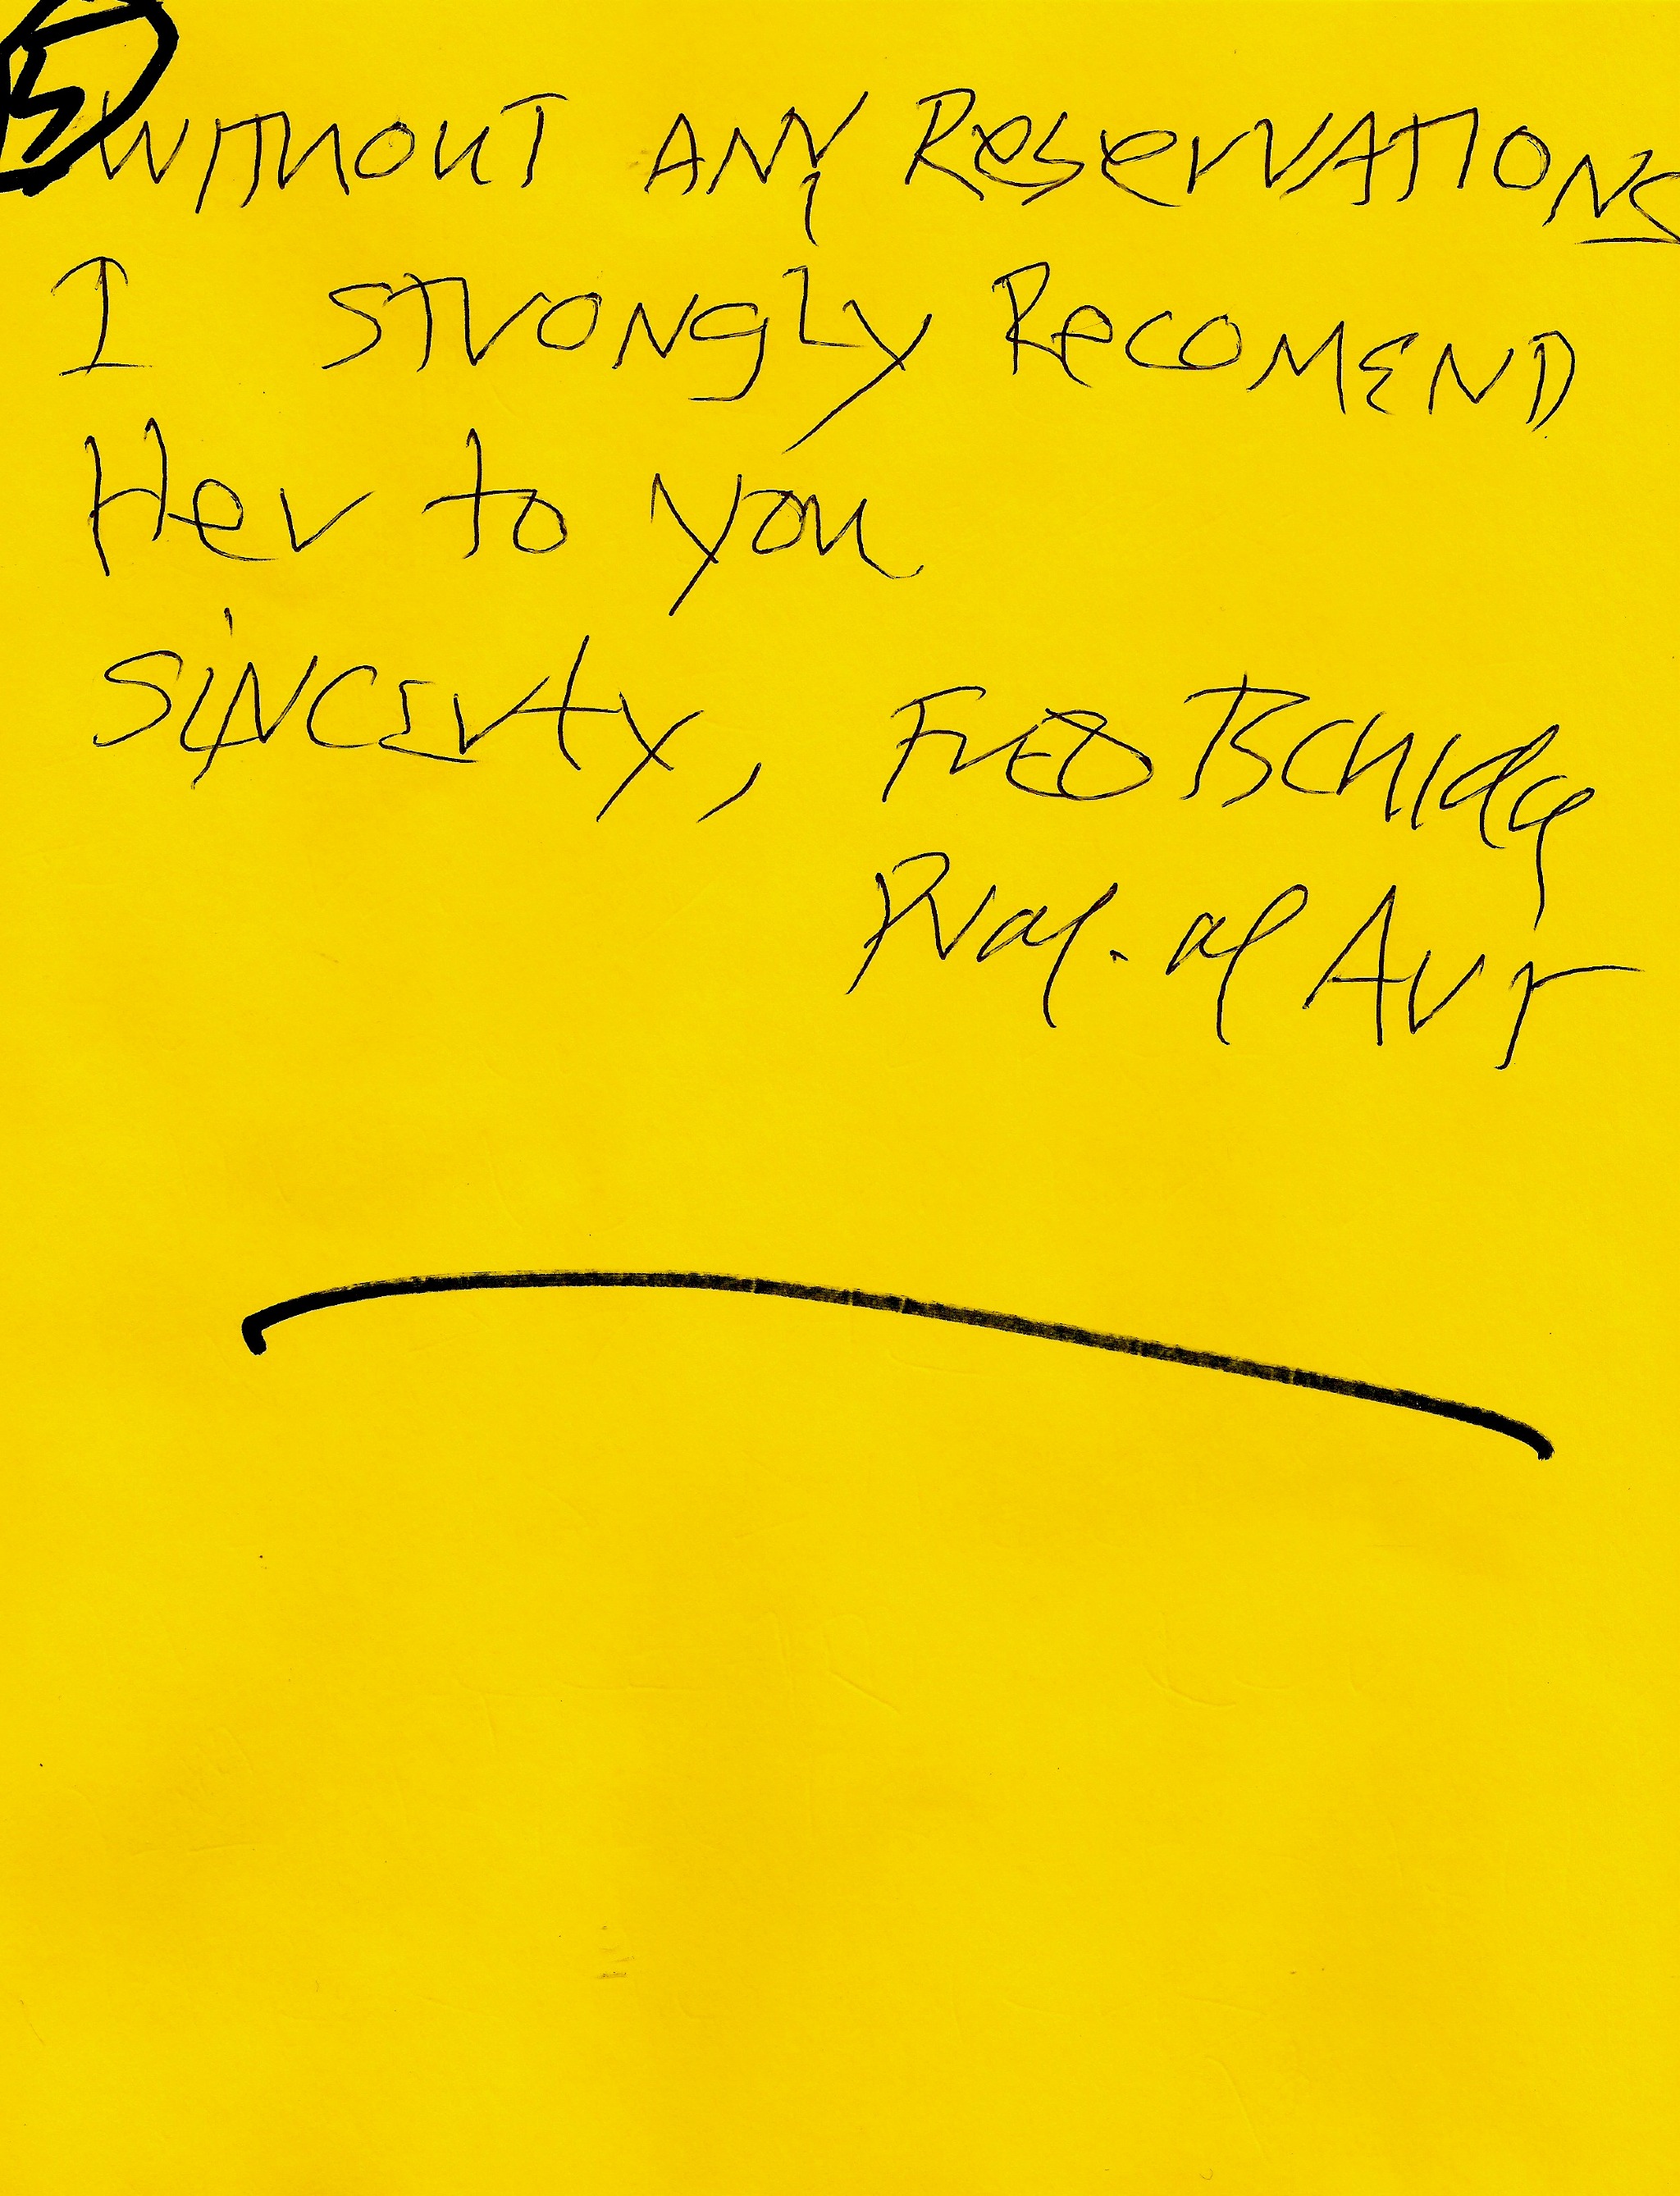 5
WITHOUT ANY ReservATIONS
I STrONgLy RecOMEND
Her to you
SiNCErty, FrED TSchida
Prof. of Art